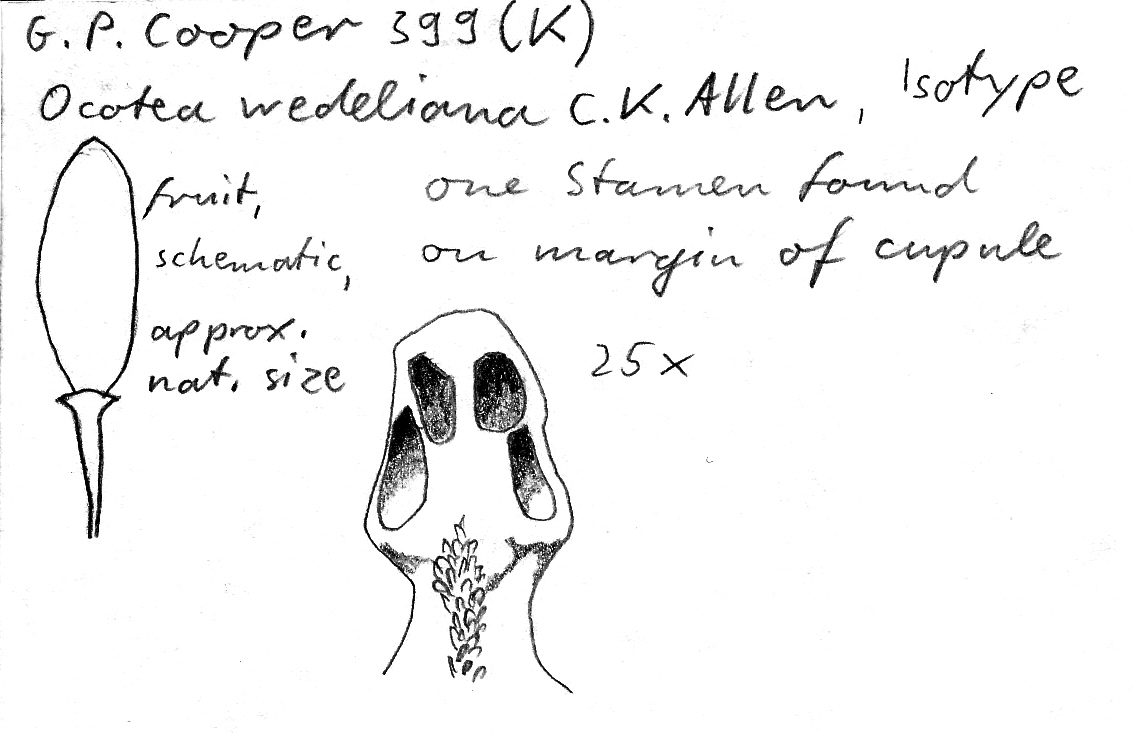 G. P. Cooper 399 (K)
Ocotea wedeliana C.K. Allen, Isotype
fruit,
schematic,
approx.
nat. size
one Stamen found
on margin of cupule
25 x